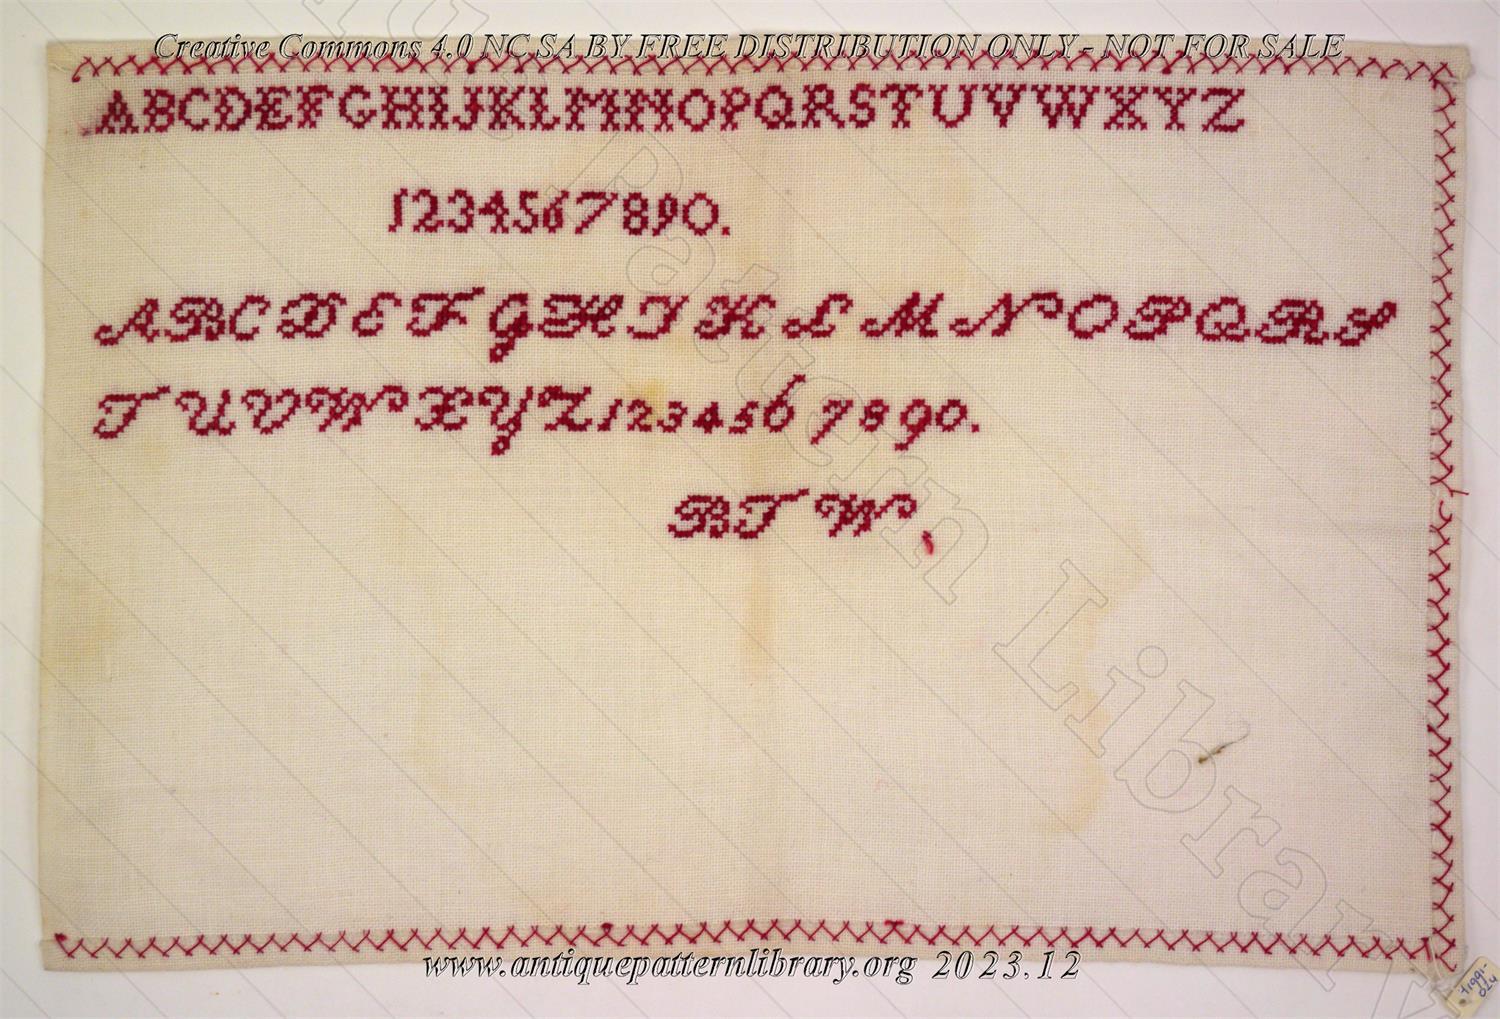 Creative Commons 4.0 NC SA BY FREE DISTRIBUTION ONLY - NOT FOR SALE
ABCDEFGHIJKLMNOPQRSTUVWXYZ
1234567890.
ABCDEFGHIKLMNOPQRS
TUVWXYZ1234567890.
BTW.
Pattern Library
www.antiquepatternlibrary.org 2023.12